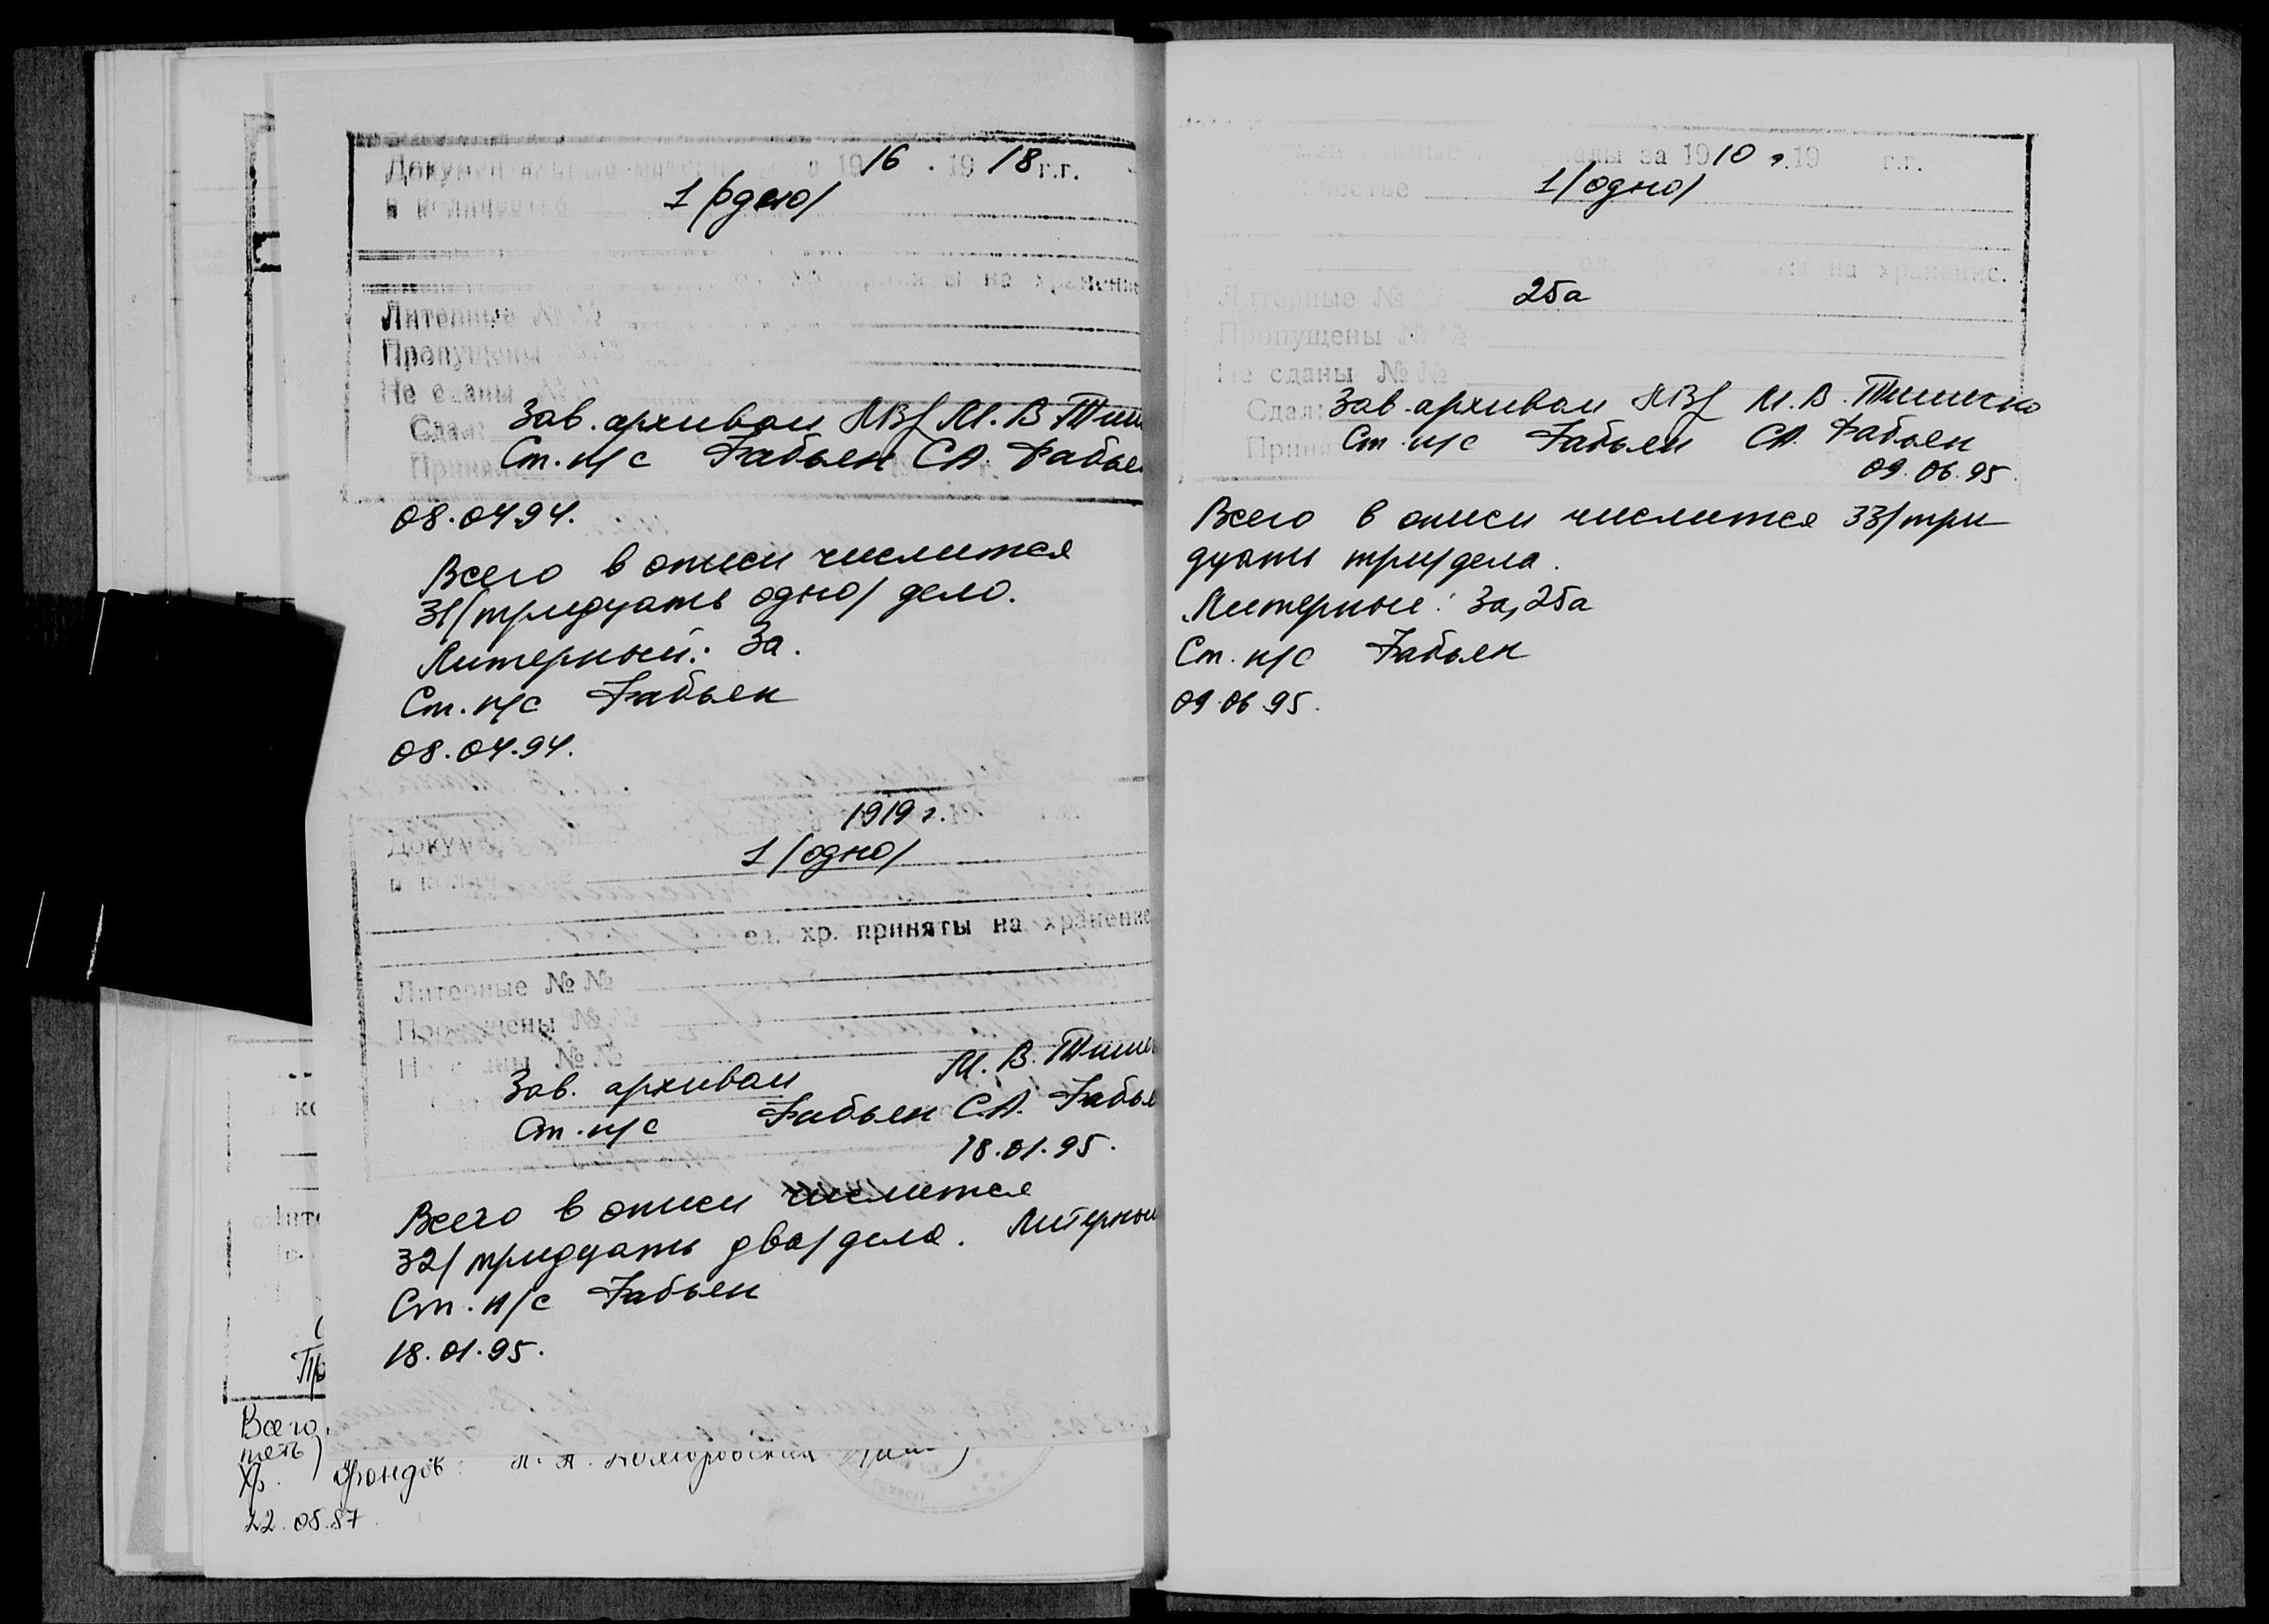 Документальные материалы за 1916 - 1918 г.г.
в количестве 1/одно/
на хранение
Литерные №№
Пропущены
Не сданы №№
Сдал: Зав. архивом М. В. Тиш
Принял Ст. н/с Фабьен С.А. Фабье
08.04.94.
Всего в описи числится
31/тридцать одно/ дело.
Литерный: 3а.
Ст. н/с Фабьен
08.04.94.
1919 г.
Докум
1/одно/
ед. хр. приняты на хранение
Литерные №№
Пропущены №№
Не сданы №№
Зав. архивом М. В. Тише
Ст. н/с Фабьен С.А. Фабье
18.01.95.
Всего в описи числится
32/тридцать два/дела. Литерны
Ст. н/с Фабьен
18.01.95.
Всего
Хр. фондов:
22.05.87.
алы за 1910 г. 19 г.г.
количестве 1/одно/
на хранение.
Литерные № 25а
Пропущены №№
Не сданы №№
Сдал: Зав. архивом М. В. Тишечко
Принял Ст. н/с Фабьен С.А. Фабьен
09.06.95.
Всего в описи числится 33/три
дцать три/дела.
Литерные: 3а, 25а
Ст. н/с Фабьен
09.06.95.